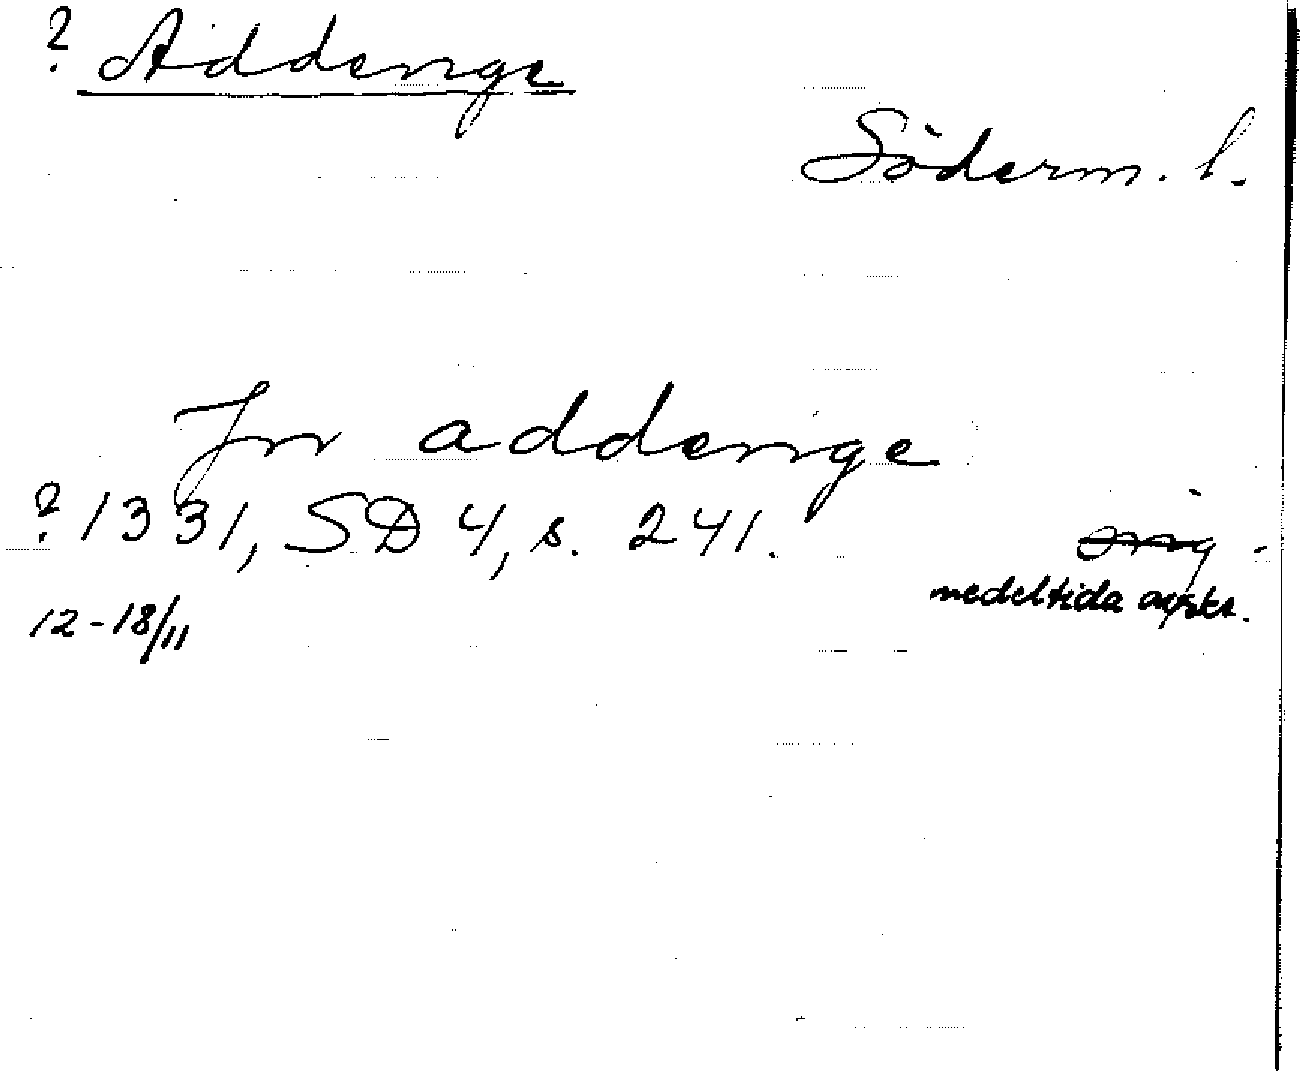 ? Addenge
Söderm. l.
Jn addenge
? 1331, SD 4, s. 241.
orig.
medeltida avskr.
12-18/11